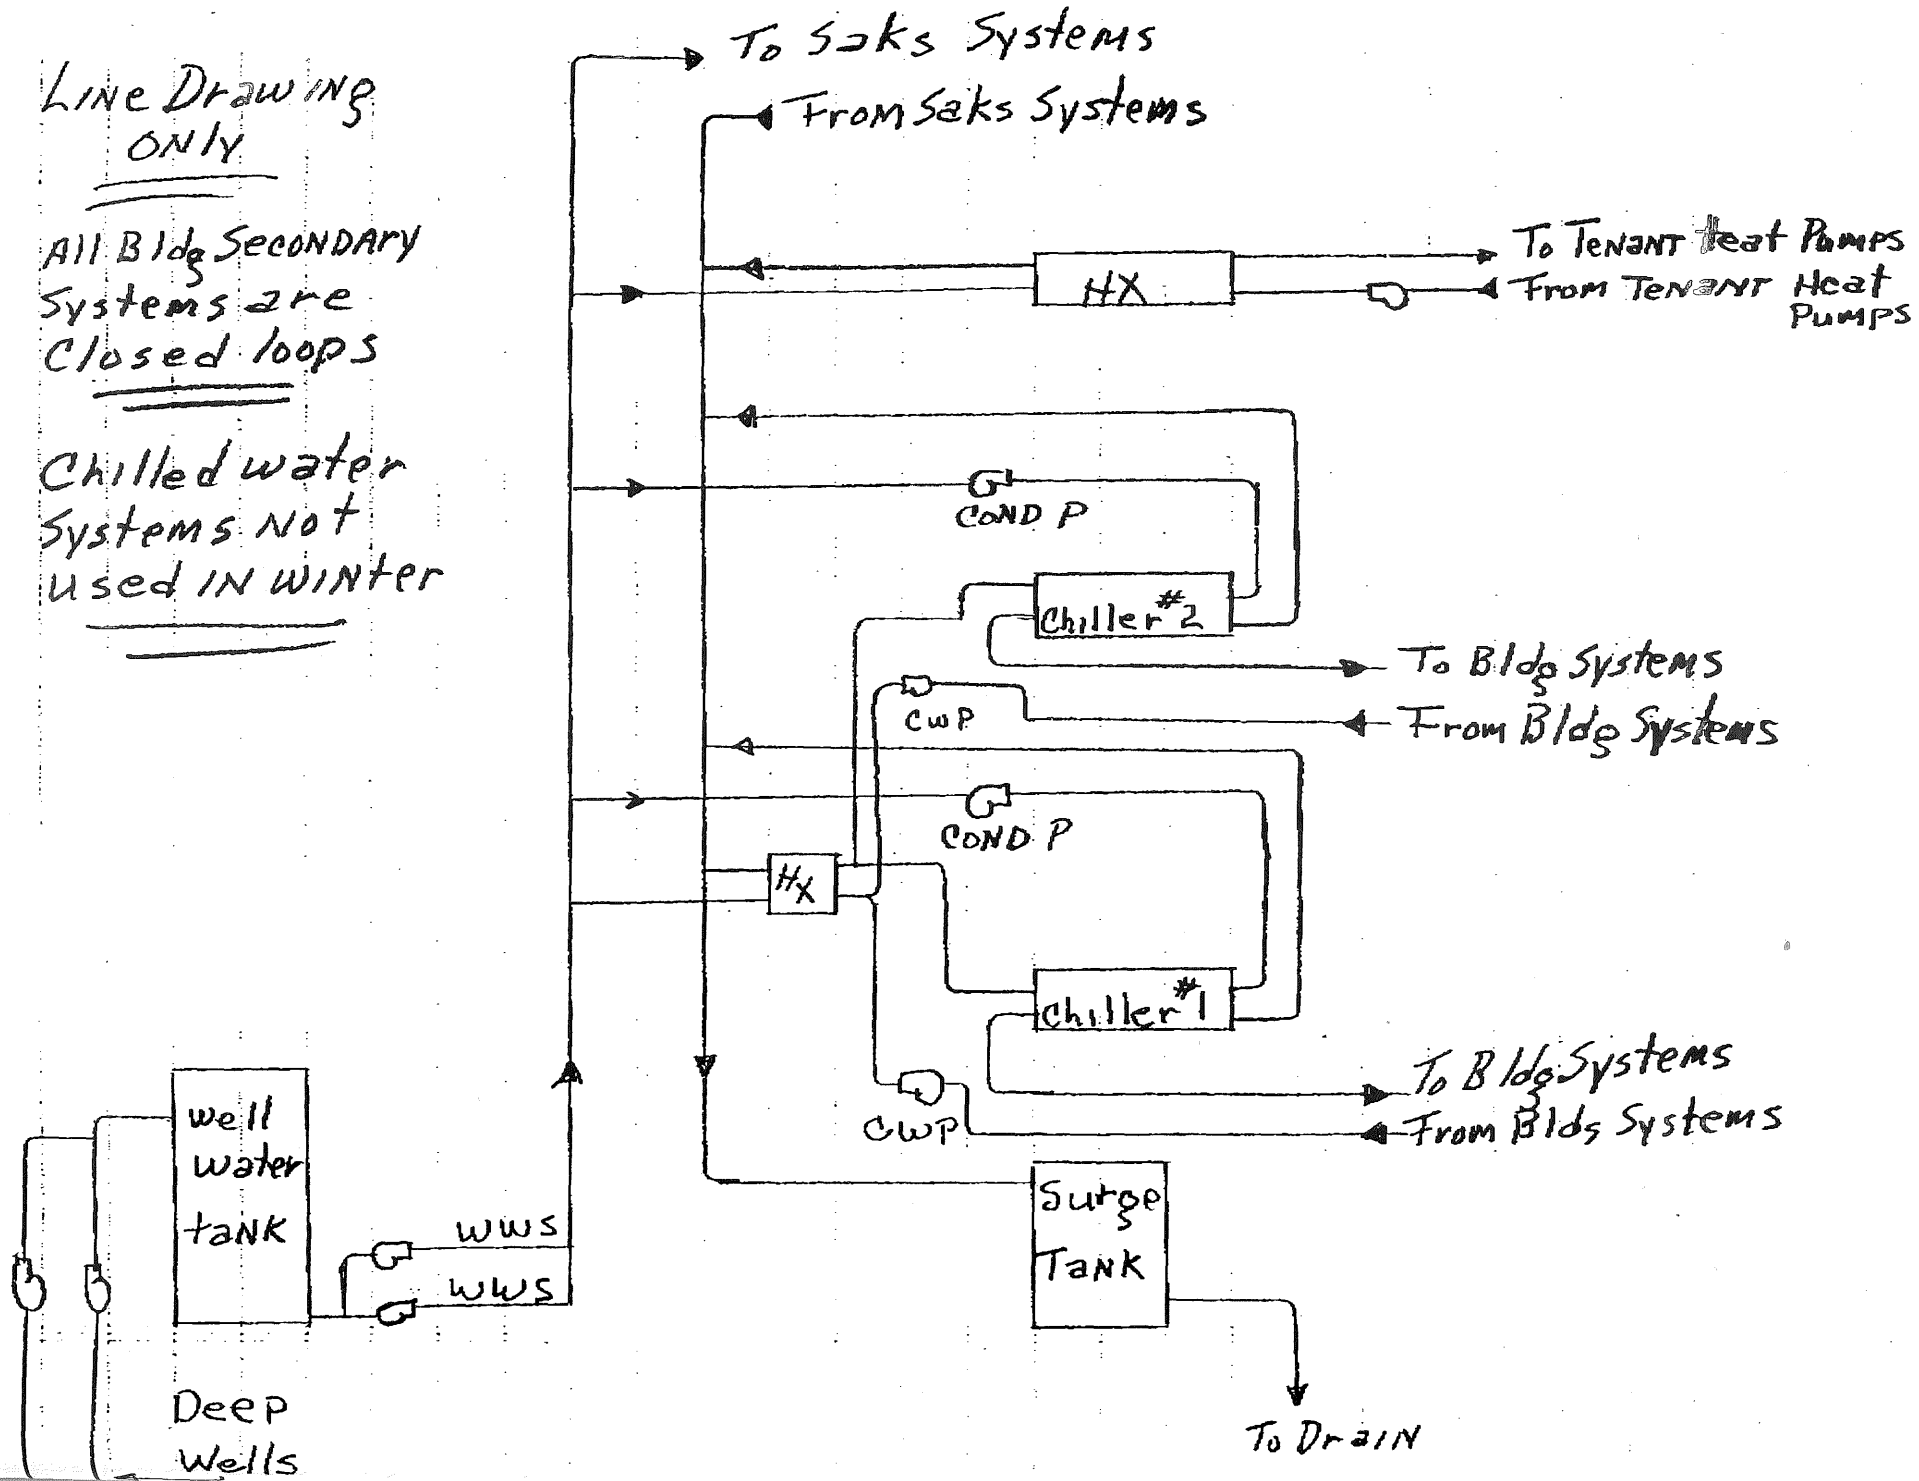 Line Drawing
Only
All Bldg Secondary
Systems are
Closed loops
Chilled water
Systems Not
Used IN WINter
To Saks Systems
From Saks Systems
HX
To Tenant Heat Pumps
From Tenant Heat
Pumps
COND P
Chiller #2
To Bldg Systems
CWP
From Bldg Systems
COND P
HX
Chiller #1
To Bldg Systems
CWP
From Bldg Systems
well
water
tank
WWS
WWS
Surge
Tank
Deep
Wells
To Drain